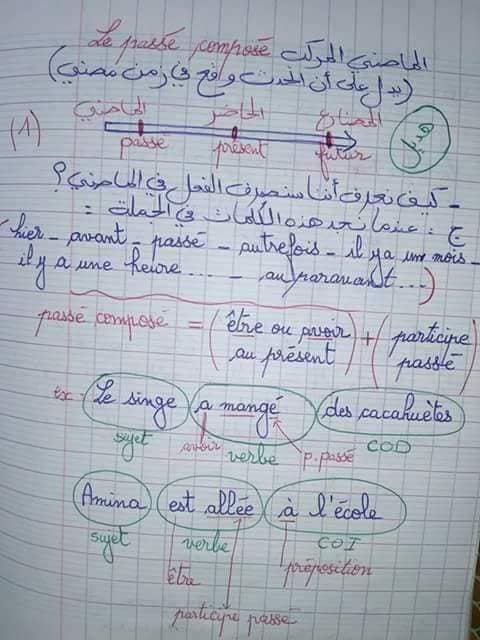 Le passé composé الماضي المركب
(يدل على أن الحدث واقع في زمن مضى)
الماضي الحاضر المضارع
(1)
passé présent futur
هديل
- كيف نعرف أننا سنصرف الفعل في الماضي؟
ج: عندما نجد هذه الكلمات في الجملة :
(hier - avant - passé - autrefois - il y a un mois -
il y a une heure .... - au paravant ...)
passé composé = (être ou avoir au présent) + (participe passé)
ex: Le singe a mangé des cacahuètes
sujet avoir verbe p. passé COD
Amina est allée à l'école
sujet verbe COI
être préposition
participe passé